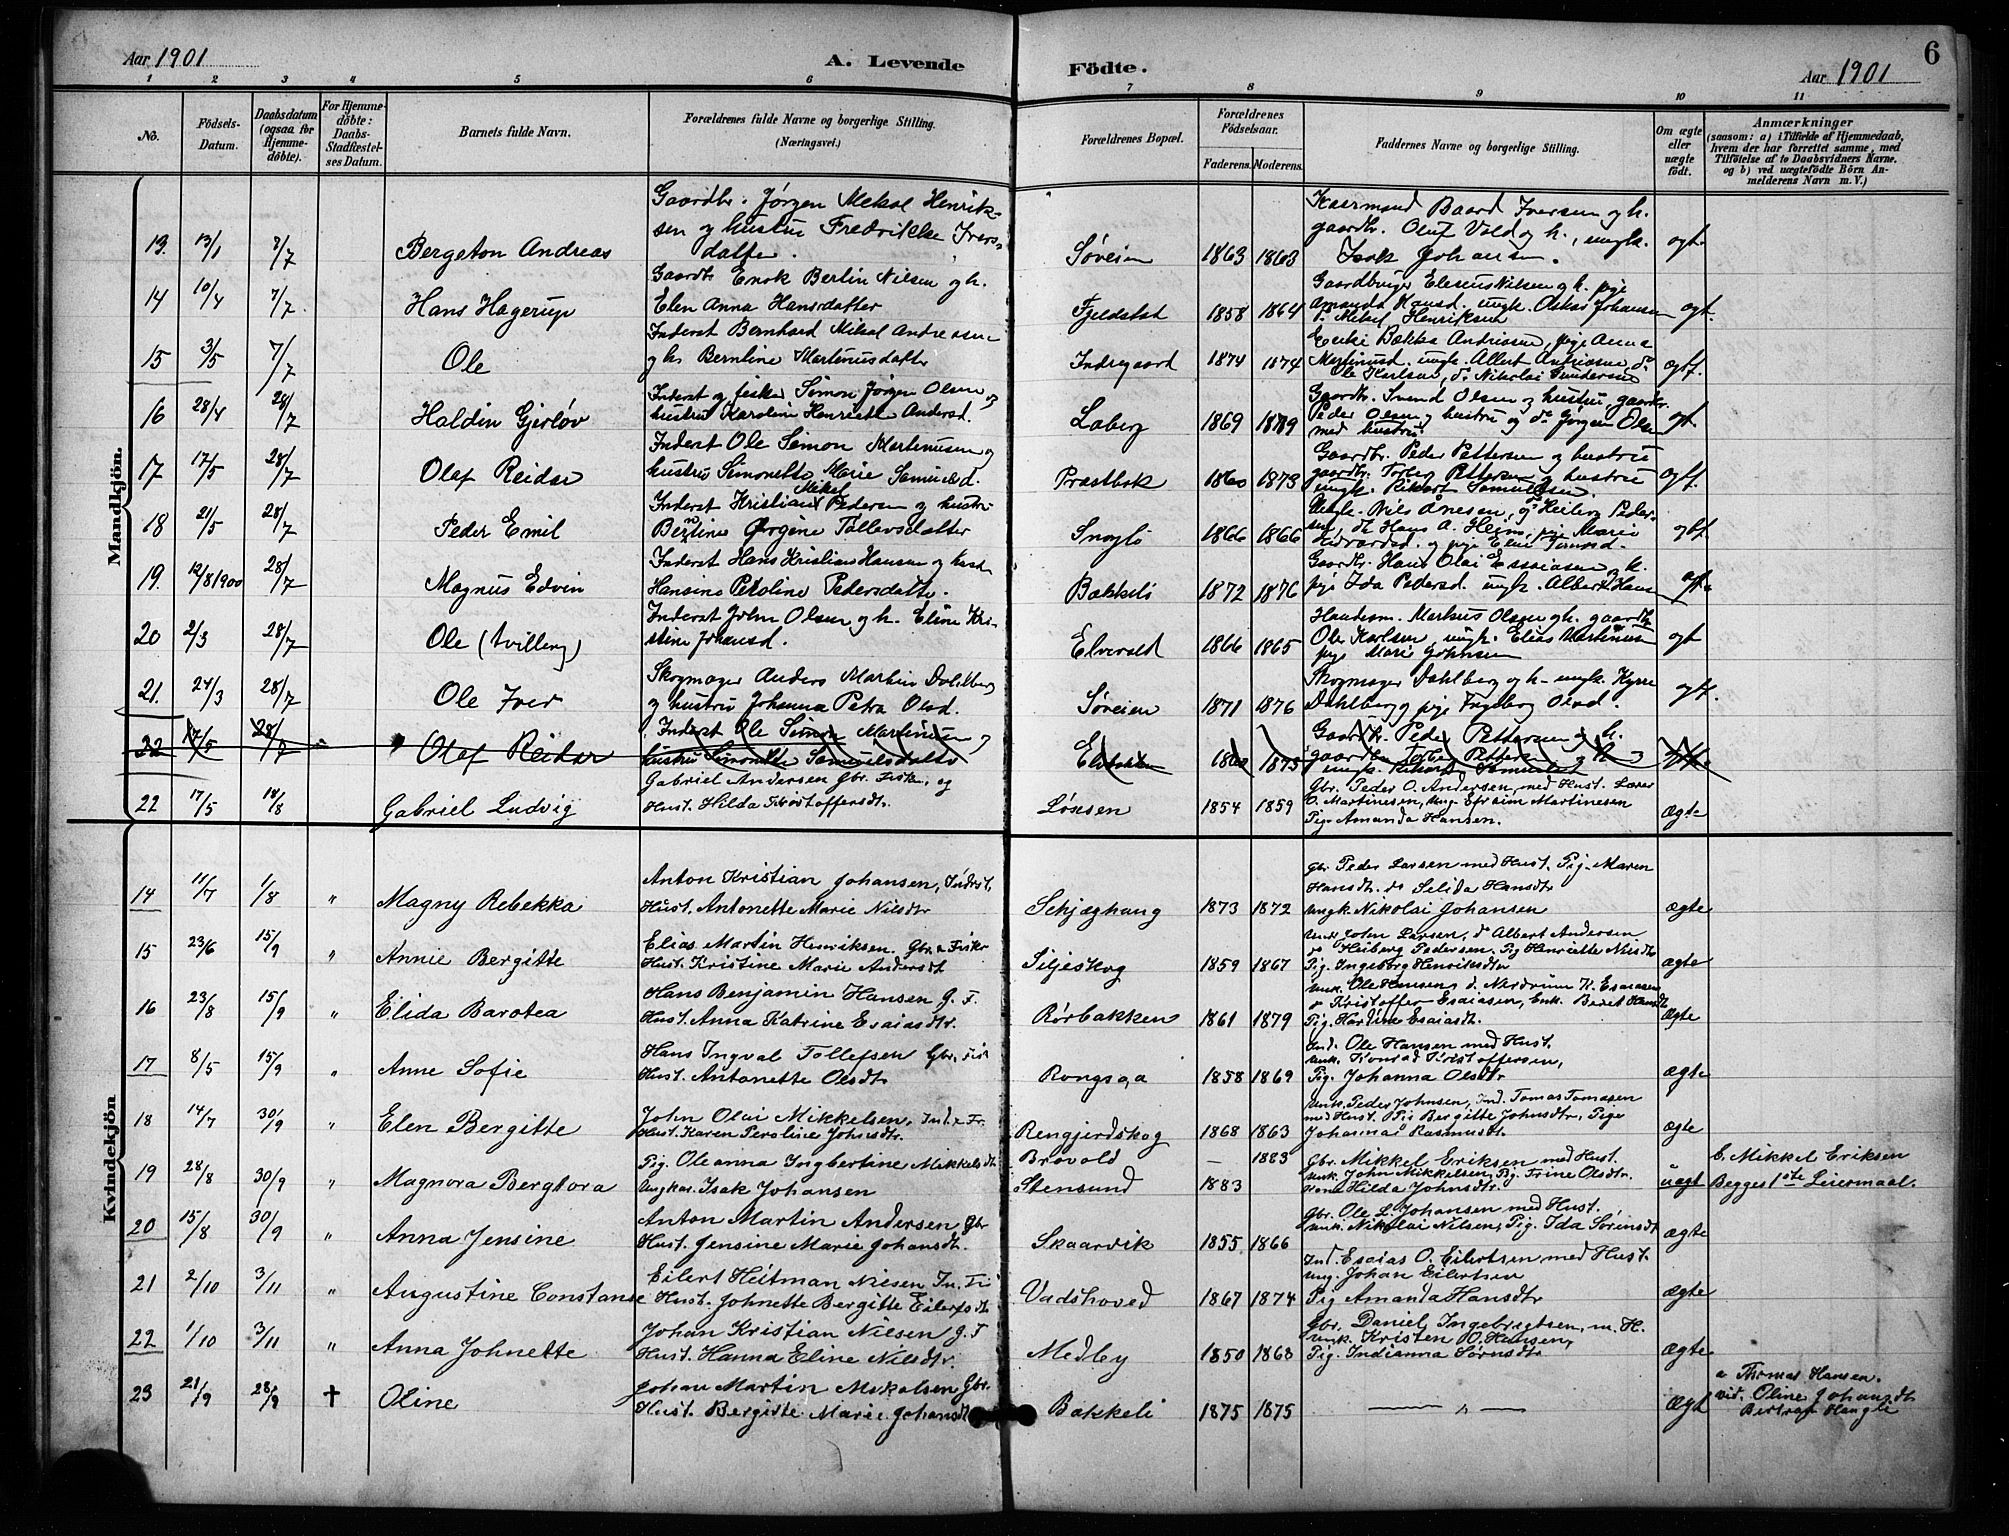 Aar 1901
A. Levende
Födte.
Aar 1901
6
1 2 3 4 5 6 7 8 9 10 11
No.
Födsels-
Datum.
Daabsdatum
(ogsaa for
Hjemme-
döbte).
For Hjemme-
döbte:
Daabs-
Stadfæstel-
ses Datum.
Barnets fulde Navn.
Forældrenes fulde Navne og borgerlige Stilling.
(Næringsvei.)
Forældrenes Bopæl.
Forældrenes
Födselsaar.
Faderens.
Moderens.
Faddernes Navne og borgerlige Stilling.
Om ægte
eller
uægte
födt.
Anmærkninger
(saasom: a) i Tilfælde af Hjemmedaab,
hvem der har forrettet samme, med
Tilföielse af to Daabsvidners Navne.
og b) ved uægtefödte Börn An-
melderens Navn m. V.)
Mandkjön.
Gaardbr. Jørgen Mekal Henrik-
sen og hustru Fredrikke Ivers-
13. 13/1 7/7 Bergeton Andreas datter. Søveien 1863 1863
Kaarmand Baard Iversen og h.
gaardbr. Oluf Vold og h., ungk.
Isak Johansen. ogt.
Gaardbr Enok Bertin Nilsen og h.
14 10/4 7/7. Hans Hagerup Elen Anna Hansdatter Fjeldstad 1858 1864
Gaardbruger Eleseus Nilsen og h. pige
Amanda Hansd. ungk. Oskar Johansen ogt.
do Mekal Henriksen
Inderst Bernhard Mikal Andreasen
15 3/5 7/7 Ole og h. Berntine Martinusdatter Indregaard 1874 1874
Enke Bakka Andriasen, pige Anna
Martinusd. ungk. Albert Andriasen do
Ole Karlsen, do Nikolai Gundersen ogt.
Inderst og fisker Simon Jørgen Olsen og
16 28/4 28/7 Haldin Gjerløv hustru Karoline Henriette Andersd. Laberg 1869 1879
Gaardbr. Svend Olsen og hustru, gaardbr.
Peder Olsen og hustru og do Jørgen Olsen
med hustru ogt.
Inderst Ole Simon Martinusen og
17 17/5 28/7 Olaf Reidar hustru Simonette Marie Samuelsd. Præstbak 1860 1873
Gaardbr. Peder Pettersen og hustru
gaardbr. Torberg Pettersen og hustru
ungk. Rikart Samuelsen. ogt.
Inderst Kristian Mikal Pedersen og hustru
18 21/5 28/7 Peder Emil Bertine Jørgine Tollevsdatter 1866 1866
Ungk. Nils Ånesen, do Heiberg Peder-
sen, do Hans A. Heim, pige Marie
Edvardsd. og pige Eline ogt.
Inderst Hans Kristian Hansen og hust.
19. 12/8 1900 28/7 Magnus Edvin Hansine Petroline Pedersdatter. Bakkeli 1872 1876
Gaardbr. Hans Olai Essaiasen og h.
pige Ida Pedersd. ungk. Albert Hansen ogt.
Inderst John Olsen og h. Eline Kri-
20 2/3 28/7 Ole (tvilling) stine Johansd. Elvevold 1866 1865
Handelsm. Markus Olsen og h. gaardbr.
Ole Karlsen, ungk. Elias Martinusen
pige Marie Johnsen ogt
Skogmager Anders Martin Dahlberg
21. 24/3 28/7 Ole Iver og hustru Johanna Petra Olsd. Søveien 1871 1876
Skogmager Dahlberg og h. ungk. Kyrre
Dahlberg og pige Ingeborg Olsd. ogt.
Inderst Ole Simon Martinusen og
22 17/5 28/7 " Olaf Reidar hustru Simonette Samuelsdatter 1860 1873
Gaardbr. Peder Pettersen og h.
gaardbr. Torberg Pettersen og h.
ungk. Rikard Samuelsen
Gabriel Andersen Gbr. Fisker, og
22 17/5 18/8 Gabriel Ludvig Hust. Hilda Kristoffersdt. Løksen 1854 1859
Gbr. Peder O. Andersen, med Hust. Lærer
O. Martinesen, Ung. Efraim Martinesen
Pig. Amanda Hansen. Ægte
Kvindekjön
Anton Kristian Johansen, Inderst,
14 11/7 1/8 " Magny Rebekka Hust. Antonette Marie Nilsdtr Schjæghaug 1873 1872
Gbr. Peder Larsen med Hust. Pig. Maren
Hansdt. do Selida Hansdtr
Ungk. Nikolai Johansen ægte
Elias Martin Henriksen. Gbr. & Fisker
15 23/6 15/9 " Annie Bergitte Hust. Kristine Marie Andersdt Siljeskog 1859 1867
Unk. John Larsen, do Albert Andersen
do Heiberg Pedersen. Pig Henriette Nilsdtr
Pig. Ingeborg Henriksdtr ægte
Hans Benjamin Hansen G. F.
16 23/8 15/9 " Elida Barotea Hust. Anna Katrine Esaiasdtr. Rørbakken 1861 1879
Unk. Ole Hansen, d. Nordrum K. Esaiasen
do Kristoffer Esaiasen, Enk. Beret Hansdtr
Pig. Hardine Esaiasdt. Ægte
Hans Ingval Tollefsen Gbr. Fisk
17 8/5 15/9 " Anne Sofie Hust. Antonette Olsdtr Rongsaa 1858 1869
Ind. Ole Hansen med Hust.
Unk. Konrad Kristoffersen,
Pig. Johanna Olsdtr ægte
John Olai Mikkelsen, Ind. & Fr.
18 14/7 30/9 " Elen Bergitte Hust. Karen Peroline Johnsdtr. Rengjerdskog 1868 1863
Unk. Peder Johnsen, Ind. Tomas Tomasen
med Hust. Pig Bergitte Johnsdtr, Pige
Johanna Rasmusdt. ægte
Pig. Oleanna Ingbertine Mikkelsdt Brøvold — 1883
19 28/8 30/9 " Magnora Bergtora Ungkar. Isak Johansen Stensund 1883
Gbr. Mikkel Eriksen med Hust.
Unk. John Mikkelsen, Pig. Trine Olsdtr.
Kone Hilda Johnsdtr. uægt
b. Mikkel Eriksen
Begges 1ste Leiermaal.
Anton Martin Andersen Gbr
20 15/8 30/9 " Anna Jensine Hust. Jensine Marie Johansdt. Skaarvik 1855 1866
Gbr. Ole L. Johansen med Hust.
Unk. Nikolai Nilsen, Pig. Ida Sørensdt ægte
Eilert Heitman Nilsen In. Fri
21 2/10 3/11 " Augustine Constanse Hust. Johnette Bergitte Eilertsdt Vadshoved 1867 1874
Ind. Esaias O. Eilertsen med Hust.
Ung. Johan Eilertsen
Pig Amanda Hansdtr ægte
Johan Kristian Nilsen G. F
22 1/10 3/11 " Anna Johnette Hust. Hanna Eline Nilsdtr. Medby 1850 1863
Gbr. Daniel Ingebrigtsen, m. H.
Unk. Kristen O. Hansen,
Pig. Indianna Sørnsdtr ægte
Johan Martin Mikalsen Gbr.
23 21/9 28/9 † Oline Hust. Bergitte Marie Johansdt Bakkeli 1875 1875 — " — ægt
a Thomas Hansen.
vid. Oline Johansdt